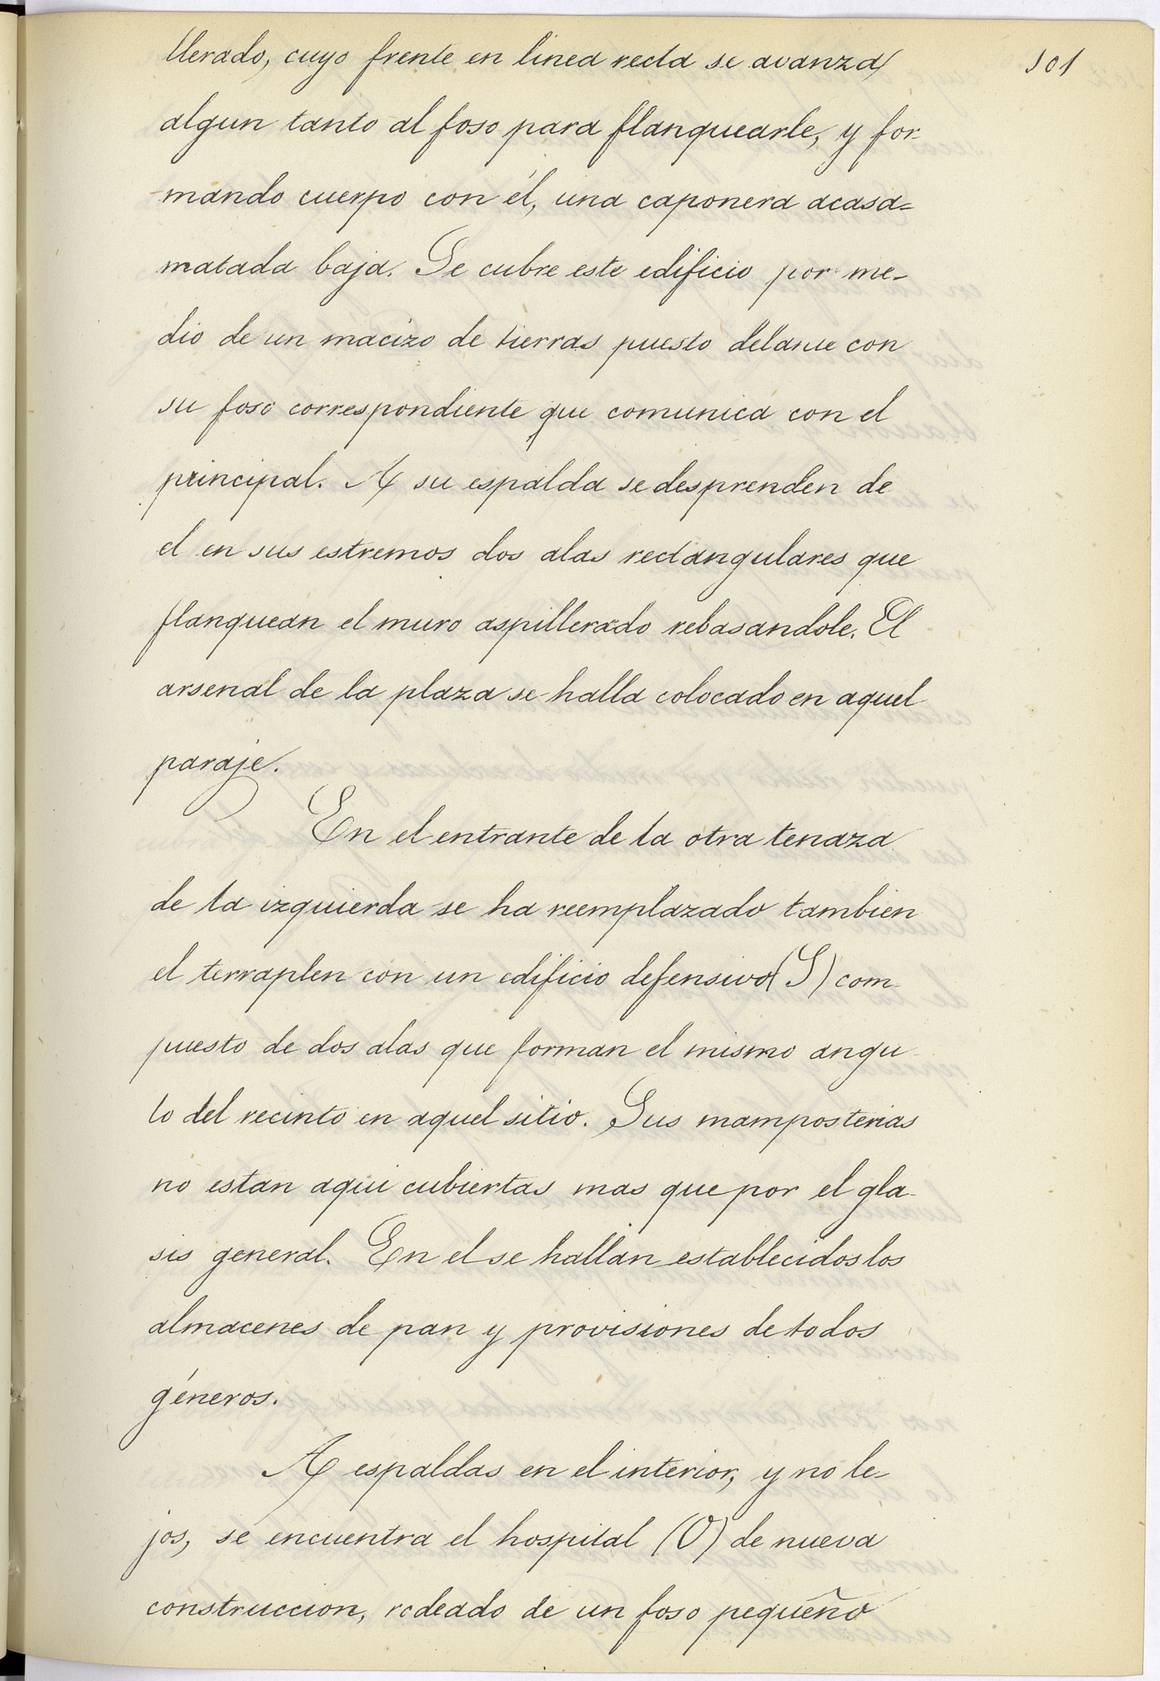 101
llerado, cuyo frente en linea recta se avanza
algun tanto al foso para flanquearle, y for-
mando cuerpo con él, una caponera acasa=
matada baja. Se cubre este edificio por me-
dio de un macizo de tierras puesto delante con
su foso correspondiente que comunica con el
principal. A su espalda se desprenden de
el en sus estremos dos alas rectangulares que
flanquean el muro aspillerado rebasandole. El
arsenal de la plaza se halla colocado en aquel
paraje.
En el entrante de la otra tenaza
de la izquierda se ha reemplazado tambien
el terraplen con un edificio defensivo (S) com-
puesto de dos alas que forman el mismo angu-
lo del recinto en aquel sitio. Sus mamposterias
no estan aqui cubiertas mas que por el gla-
sis general. En el se hallan establecidos los
almacenes de pan y provisiones de todos
géneros.
A espaldas en el interior, y no le-
jos, se encuentra el hospital (O) de nueva
construccion, rodeado de un foso pequeño